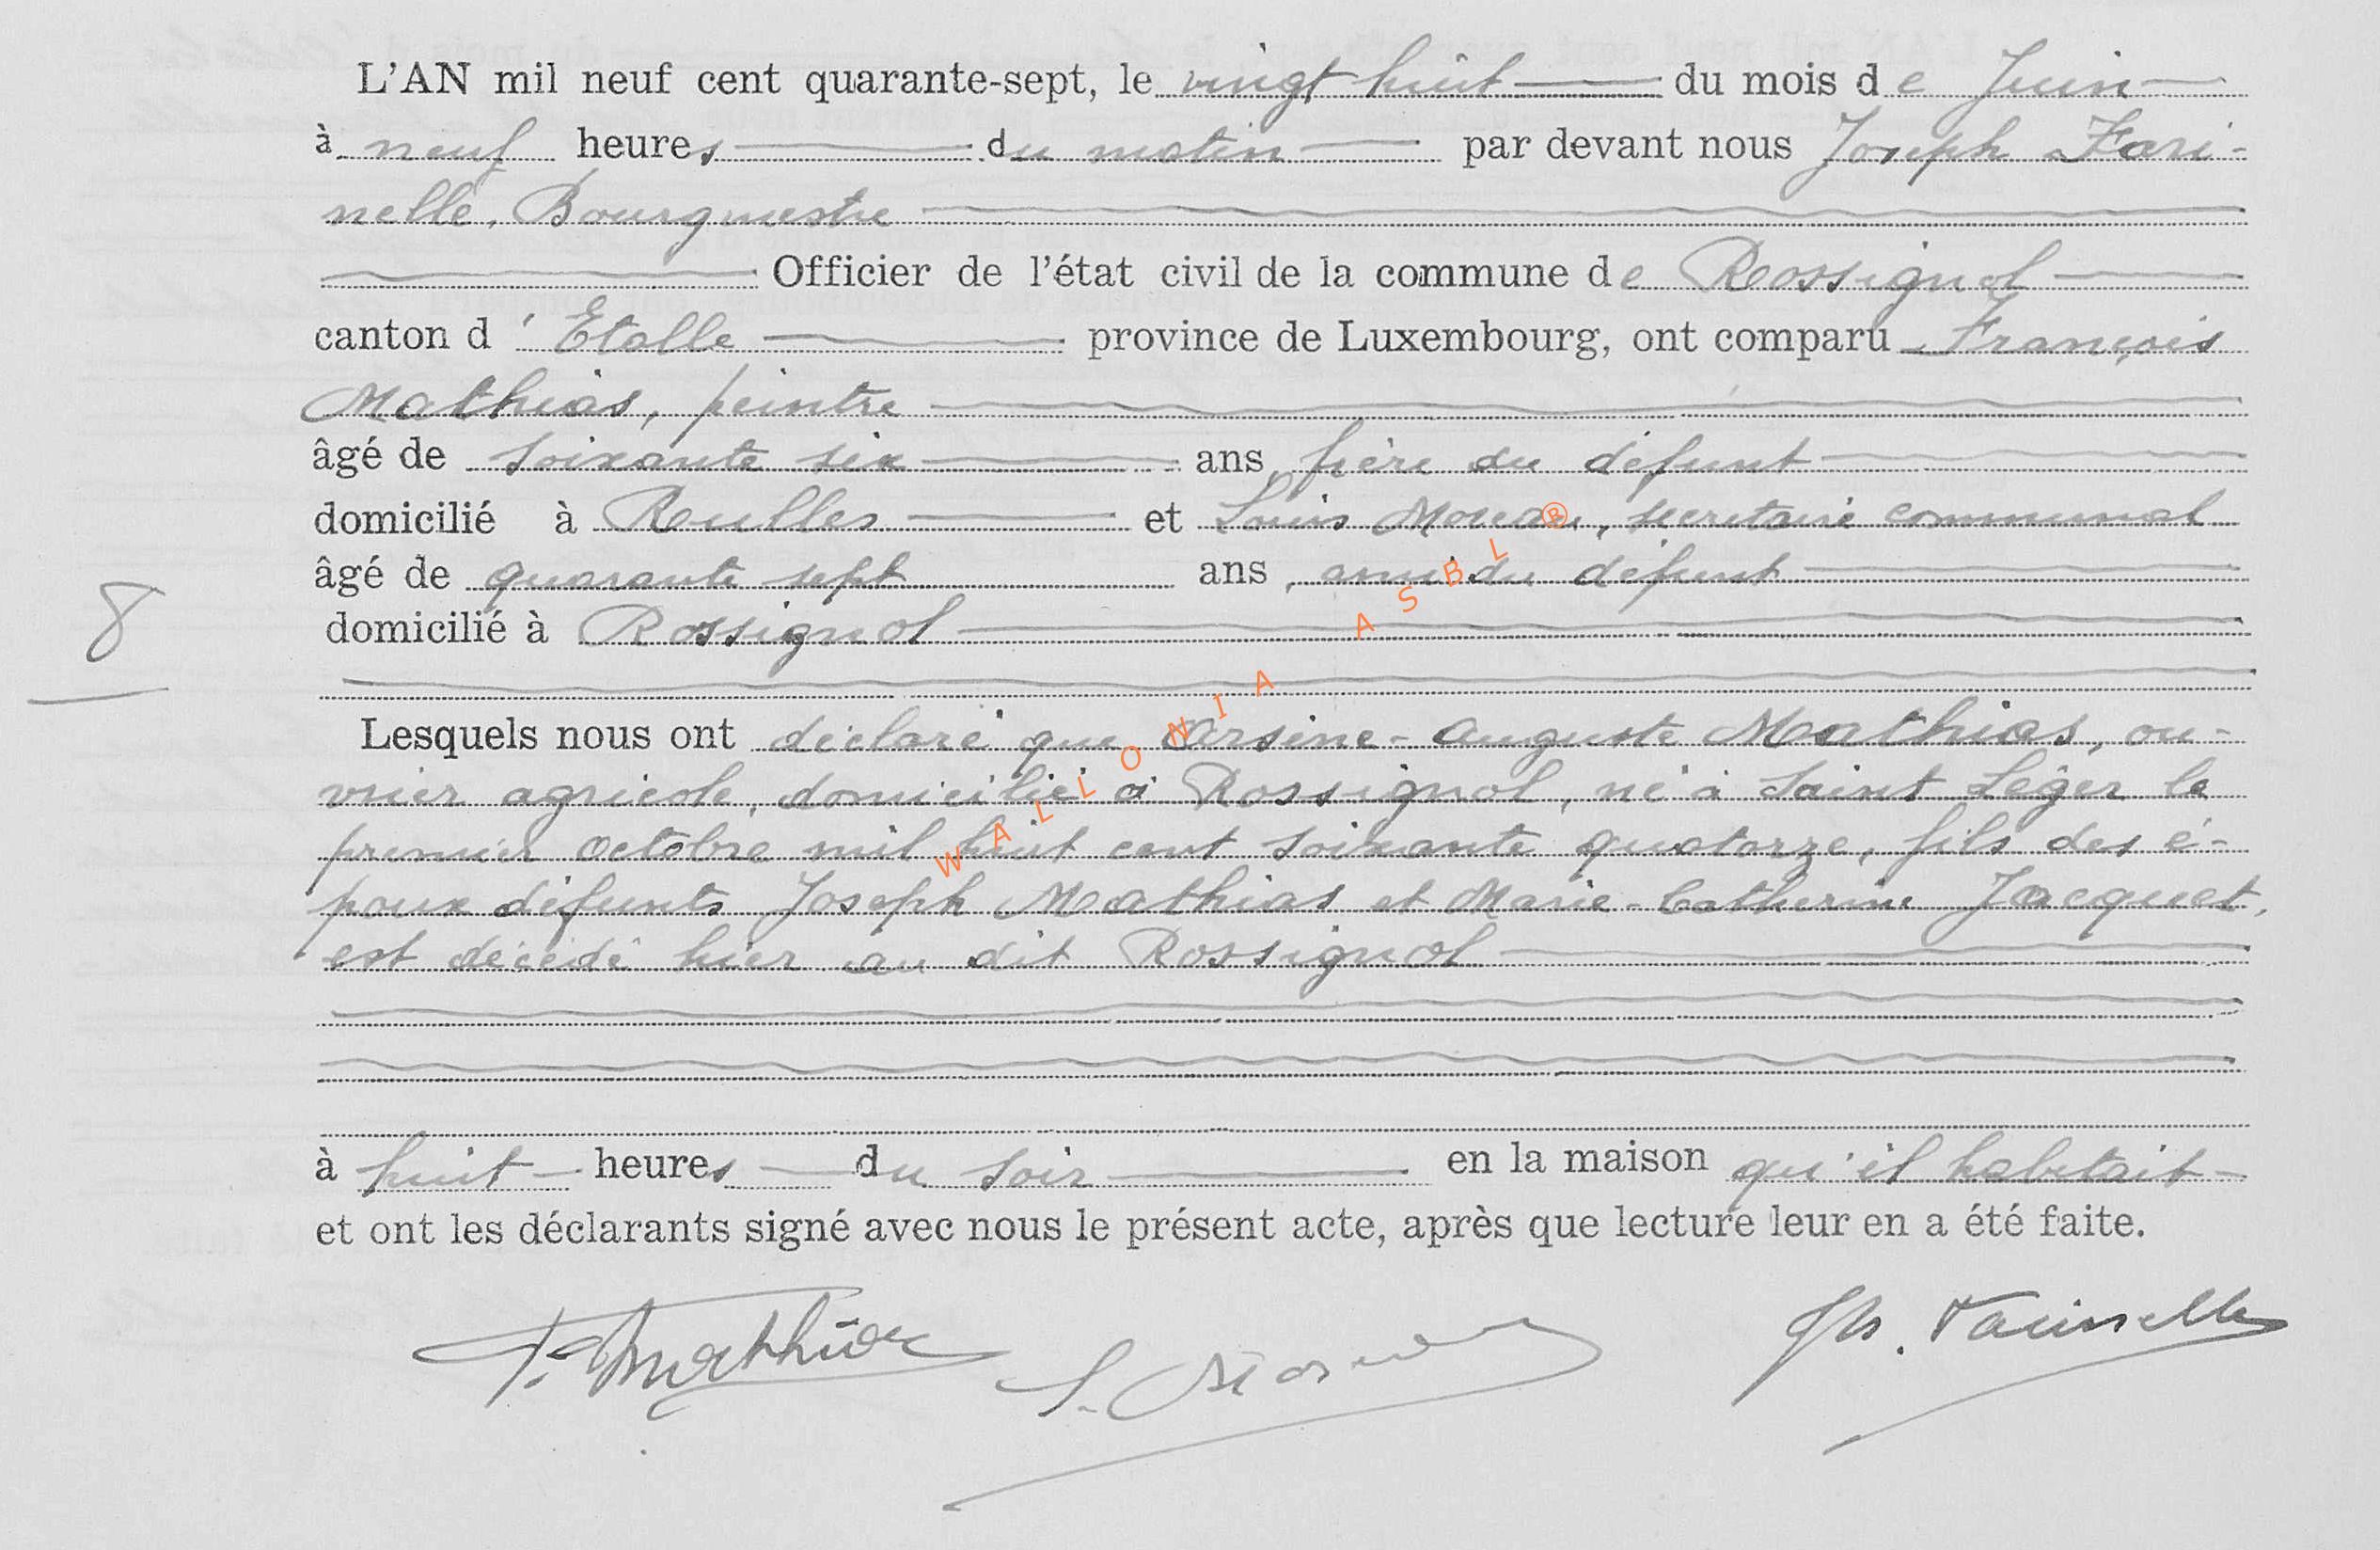 L'AN mil neuf cent quarante-sept, le vingt huit du mois de Juin
à neuf heures du matin par devant nous Joseph Fari-
nelle, Bourgmestre
Officier de l'état civil de la commune de Rossignol
canton d'Etalle province de Luxembourg, ont comparu François
Mathias, peintre
âgé de soixante six ans, frère du défunt
domicilié à Rulles et Louis Moreau, secrétaire communal
âgé de quarante sept ans, ami du défunt
8
domicilié à Rossignol
Lesquels nous ont déclaré que Arsène-Auguste Mathias, ou-
vrier agricole, domicilié à Rossignol, né à Saint Léger le
premier octobre mil huit cent soixante quatorze, fils des é-
poux défunts Joseph Mathias et Marie-Catherine Jacquet,
est décédé hier au dit Rossignol
à huit heures du soir en la maison qu'il habitait
et ont les déclarants signé avec nous le présent acte, après que lecture leur en a été faite.
F. Mathias L. Moreau Jh. Farinelle
WALLONIA ASBL ®